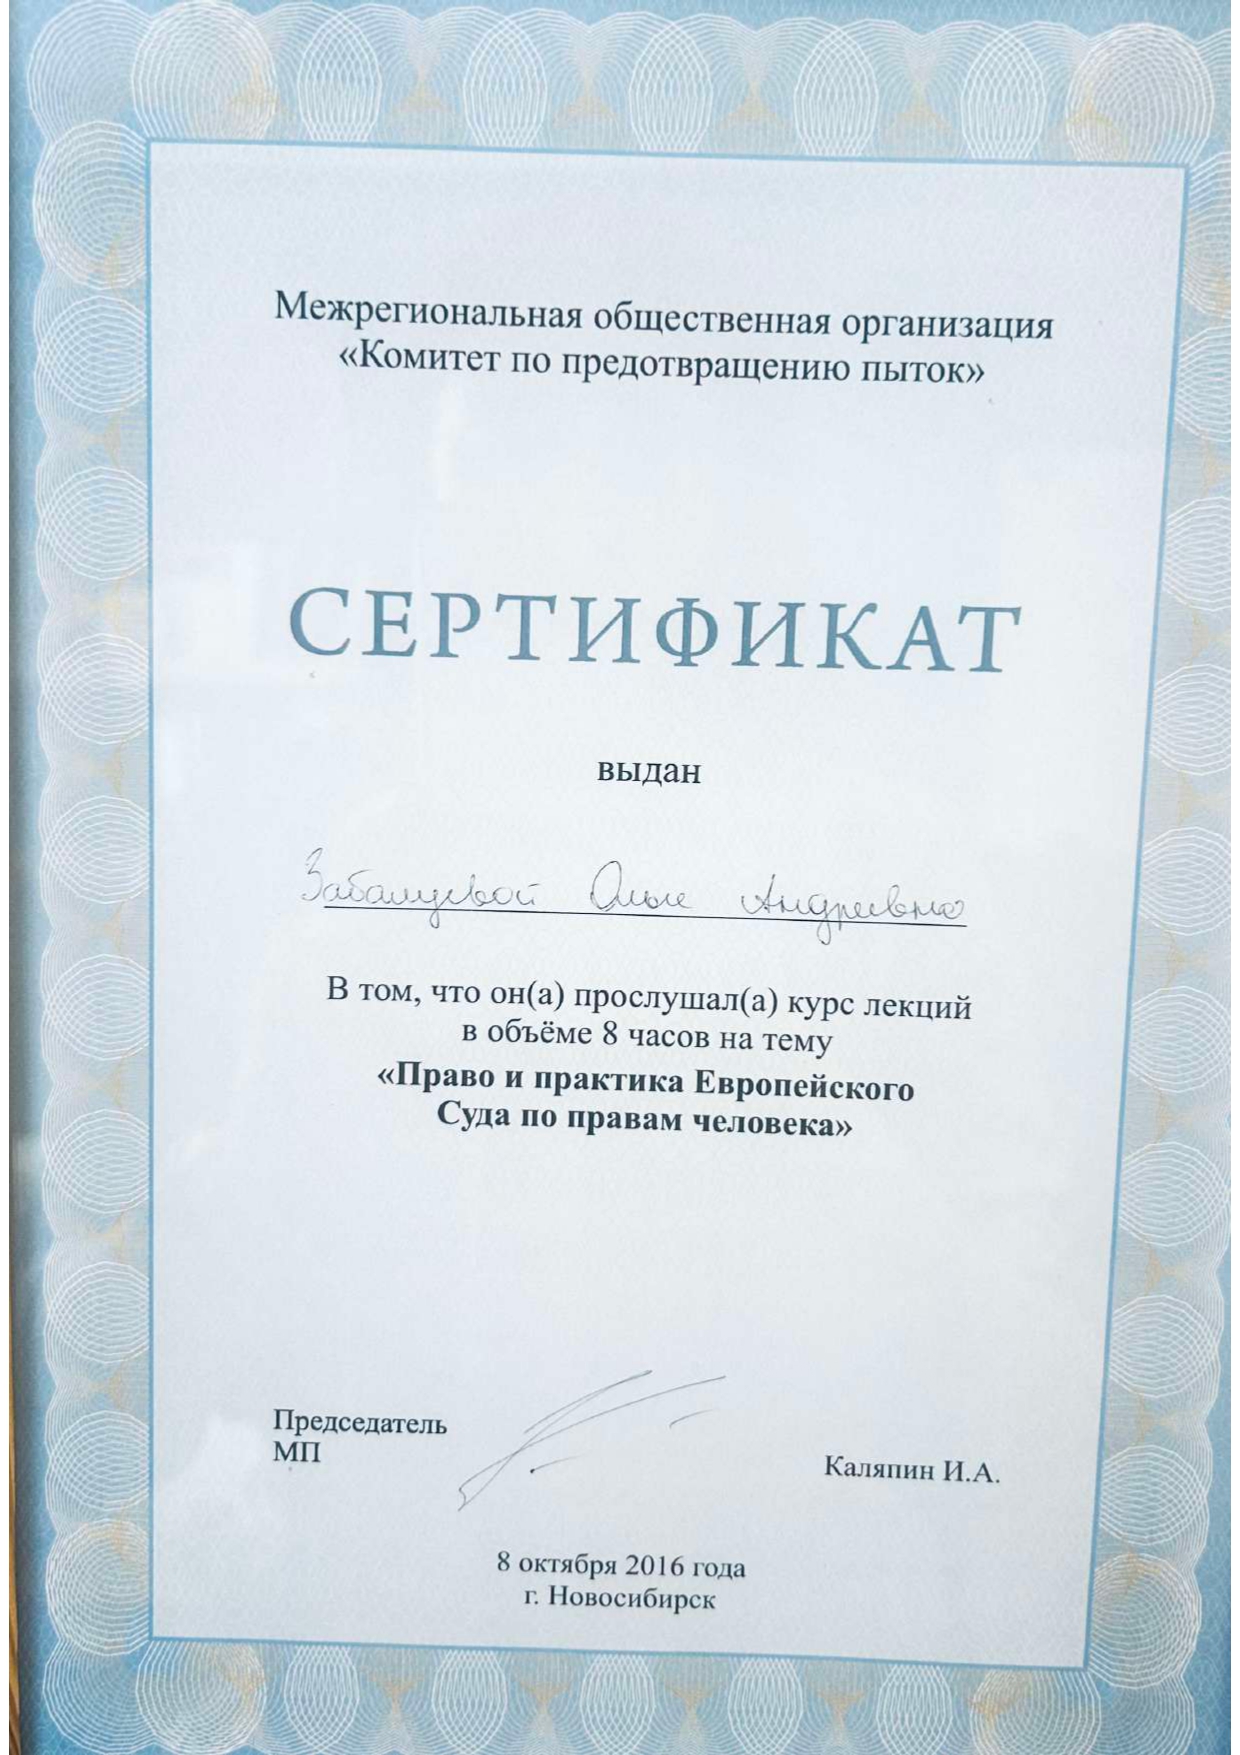 Межрегиональная общественная организация
«Комитет по предотвращению пыток»
СЕРТИФИКАТ
выдан
Забалуевой Ольге Андреевне
В том, что он(а) прослушал(а) курс лекций
в объёме 8 часов на тему
«Право и практика Европейского
Суда по правам человека»
Председатель
МП
Каляпин И.А.
8 октября 2016 года
г. Новосибирск